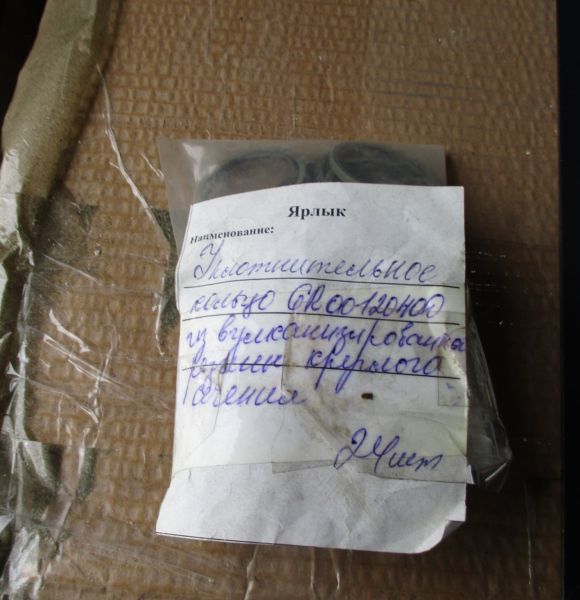 Ярлык
Наименование:
Уплотнительное
кольцо OR00120400
из вулканизирован
резины круглого
сечения
24 шт